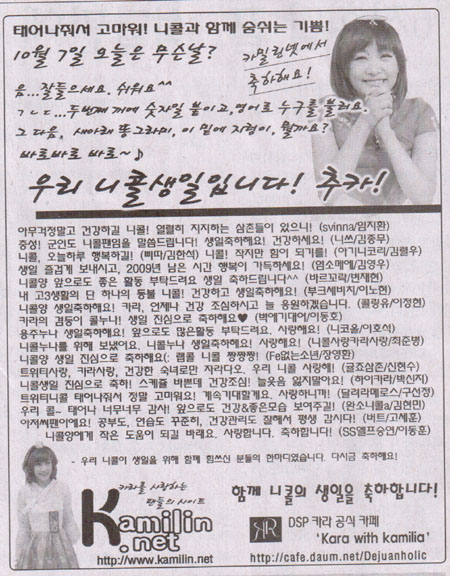 태어나줘서 고마워! 니콜과 함께 숨쉬는 기쁨!
10월 7일 오늘은 무슨날?
카밀린넷에서
축하해요!
음...잘들으세요. 쉬워요^^
ㄱㄴㄷ...두번째꺼에 숫자일 붙이고, 영어로 누구를 불러요.
그 다음, 새아래 똥그라미, 이 밑에 지렁이, 뭘까요?
바로바로 바로~♪
우리 니콜생일입니다! 추카!
아무걱정말고 건강하길 니콜! 열렬히 지지하는 삼촌들이 있으니! (svinna/임지환)
충성! 군인도 니콜팬임을 말씀드립니다! 생일축하해요! 건강하세요! (니쓰/김종무)
니콜, 오늘하루 행복하길! (삐딱/김한석) 니콜! 작지만 힘이 되기를! (아기니코리/김렬우)
생일 즐겁게 보내시고, 2009년 남은 시간 행복이 가득하세요! (염소메에/김영우)
니콜양 앞으로도 좋은 활동 부탁드려요 생일 축하드립니다^^ (바르꼬락/변재현)
내 고3생활의 단 하나의 등불 니콜! 건강하고 생일축하해요! (부크세비지/이노현)
니콜양 생일축하해요! 카라, 언제나 건강 조심하시고 늘 응원하겠습니다. (콜링유/이정현)
카라의 검둥이 콜누나! 생일 진심으로 축하해요♥ (벽에기대어/이동호)
용주누나 생일축하해요! 앞으로도 많은활동 부탁드려요. 사랑해요! (니코올/이호석)
니콜누나를 위해 보냈어요. 니콜누나 생일축하해요! 사랑해요! (니콜사랑카라사랑/최준병)
니콜양 생일 진심으로 축하해요(: 랩콜 니콜 짱짱짱! (Fe없는소년/장영환)
트위티사랑, 카라사랑, 건강한 숙녀로만 자라다오. 우리 니콜 사랑해! (귤죠삼촌/신현수)
니콜생일 진심으로 축하! 스케쥴 바쁜데 건강조심! 늘웃음 잃지말아요! (하이카라/박신지)
트위티니콜 태어나줘서 정말 고마워요! 계속기대할게요. 사랑하니까! (달려라메로스/구선정)
우리 콜~ 태어나 너무너무 감사! 앞으로도 건강&좋은모습 보여주길! (완소니콜a/김현민)
아저씨팬이에요! 공부도, 연습도 꾸준히, 건강관리도 잘해서 평생 갑시다! (버트/고세훈)
니콜양에게 작은 도움이 되길 바래요. 사랑합니다. 축하합니다! (SS엘프승연/이동훈)
- 우리 니콜이 생일을 위해 함께 힘쓰신 분들의 한마디였습니다. 다시금 축하해요!
카라를 사랑하는
팬들의 사이트
Kamilin
.net
http://www.kamilin.net
함께 니콜의 생일을 축하합니다!
DSP 카라 공식 카페
'Kara with kamilia'
http://cafe.daum.net/Dejuanholic